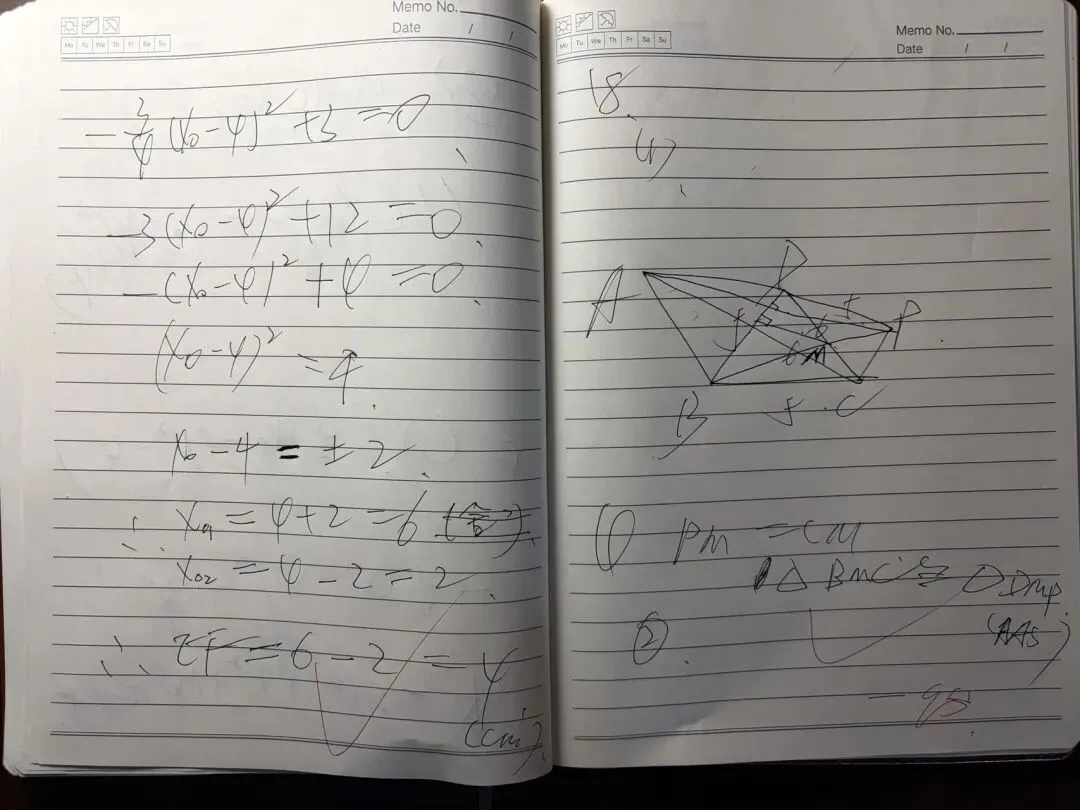 Memo No.
Date / /
Mo Tu We Th Fr Sa Su
-3/4(x₀-4)²+3=0
-3(x₀-4)²+12=0.
-(x₀-4)²+4=0.
(x₀-4)²=4.
x₀-4=±2.
∴ x₀₁=4+2=6(舍).
x₀₂=4-2=2.
∴ EF=6-2=4.
(cm).
Memo No.
Date / /
Mo Tu We Th Fr Sa Su
18.
(1)
D
A P
M
B C
① PM=CM
△BMC≌△DMP
(AAS)
②.